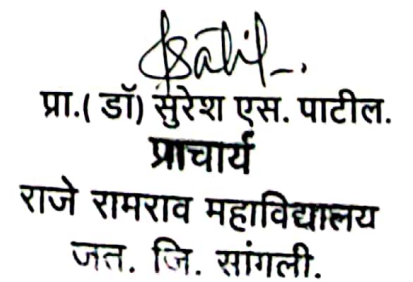 प्रा.( डॉ) सुरेश एस. पाटील.
प्राचार्य
राजे रामराव महाविद्यालय
जत. जि. सांगली.